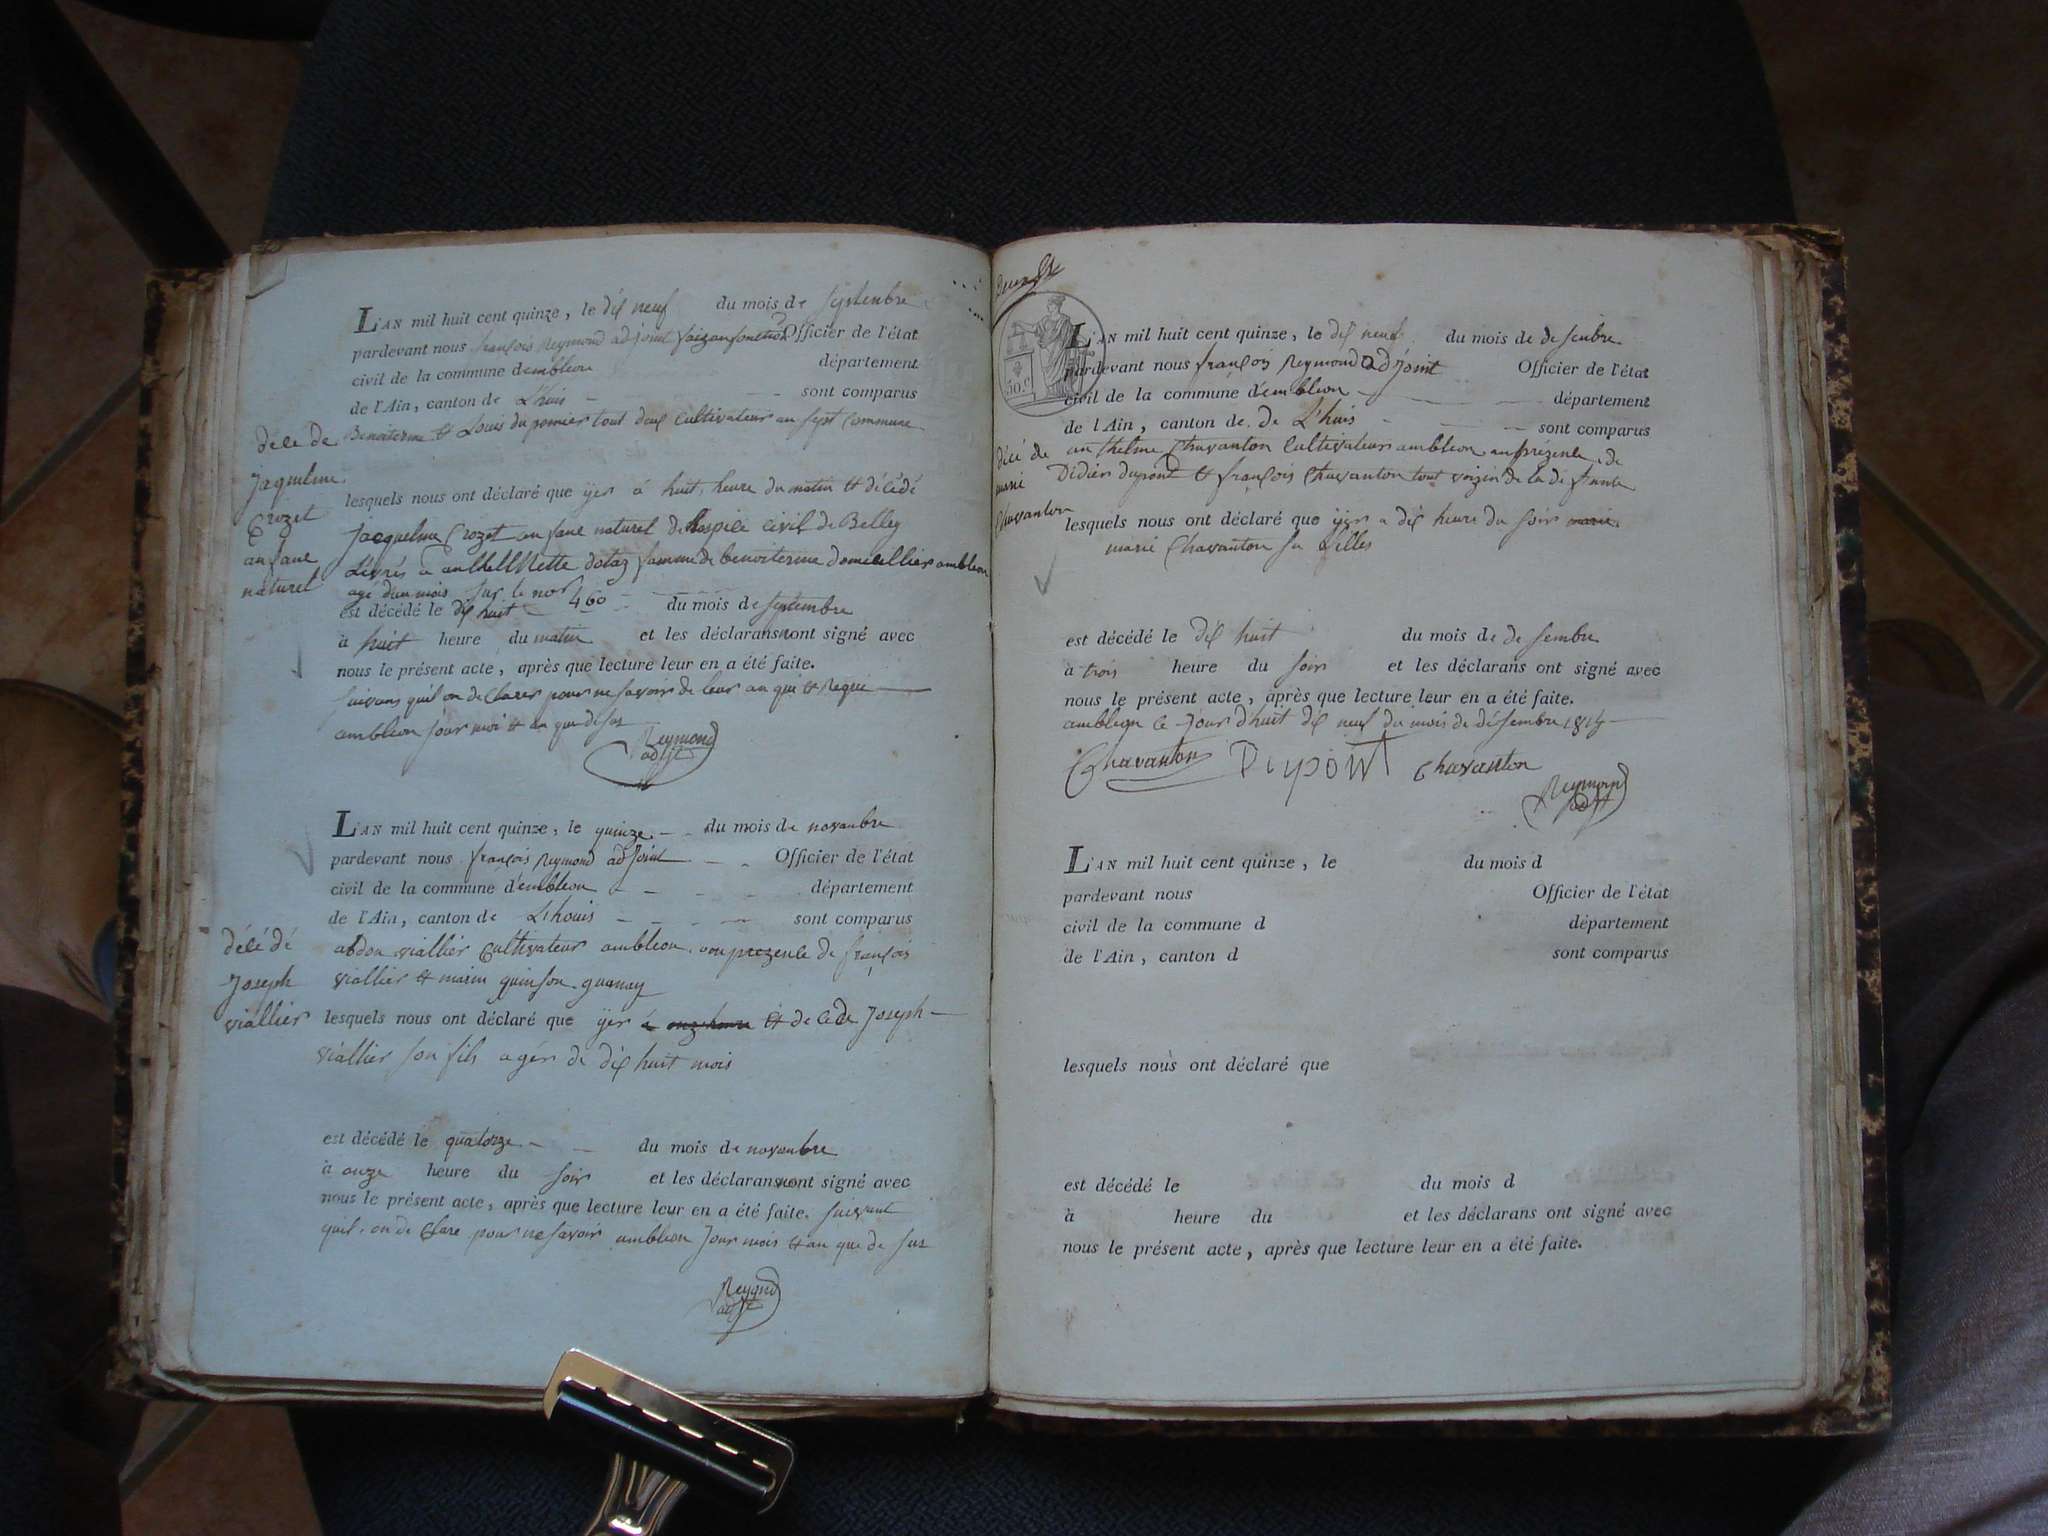 L'AN mil huit cent quinze, le dix neuf du mois de septenbre
pardevant nous françois Reymond adjoint Officier de l'état
civil de la commune d'embleon département
de l'Ain, canton de L'huis sont comparus
Benoiterme et Louis du pomier tout deux Cultivateur au sept Commune
décé de
Jaqueline
Crozet
anfane
naturel
lesquels nous ont déclaré que yer á huit heure du matin et décédé
Jacqueline Crozet anfane naturel de hospice civil de Belley
Livrés a femme de benoiterme domicillier ambleon
agé d'un mois sur le nor 460
est décédé le dix huit du mois de septembre
à huit heure du matin et les déclarans nont signé avec
nous le présent acte, après que lecture leur en a été faite.
suivans quil on declarer pour ne savoir de leur an qui et Requi
ambleon jour moi et an que desus
Reymond
adjt
L'AN mil huit cent quinze, le quinze du mois de novanbre
pardevant nous françois Reymond adjoint Officier de l'état
civil de la commune d'embleon département
de l'Ain, canton de L'houis sont comparus
décé dé
Joseph
viallier
abdon viallier Cultivateur ambleon, au prezence de françois
viallier et marin quinson guanay
lesquels nous ont déclaré que yer a onze heure et decede Joseph
viallier son fils agér de dix huit mois
est décédé le quatorze du mois de novanbre
à onze heure du soir et les déclarans nont signé avec
nous le présent acte, après que lecture leur en a été faite. suivant
quil on de Clare pour ne savoir ambleon Jour mois et an que de sus
Reymond
adjt
50 c
L'AN mil huit cent quinze, le dix neuf du mois de desenbre
pardevant nous françois Reymond adjoint Officier de l'état
civil de la commune d'embleon département
de l'Ain, canton de de L'huis sont comparus
décé de
marie
Chavanton
anthelme Chavanton Cultivateur ambleon au prézence de
Didier dupond et françois Chavanton tout voizin de la défunte
lesquels nous ont déclaré que yer a dix heure du soir marie
marie Chavanton sa filles
est décédé le dix huit du mois de de sembre
à trois heure du soir et les déclarans ont signé avec
nous le présent acte, après que lecture leur en a été faite.
ambleon ce jour d'huit dix neuf du mois de désembre 1815
Chavanton Dupont Chavanton
Reymond
adjt
L'AN mil huit cent quinze, le du mois d
pardevant nous Officier de l'état
civil de la commune d département
de l'Ain, canton d sont comparus
lesquels nous ont déclaré que
est décédé le du mois d
à heure du et les déclarans ont signé avec
nous le présent acte, après que lecture leur en a été faite.